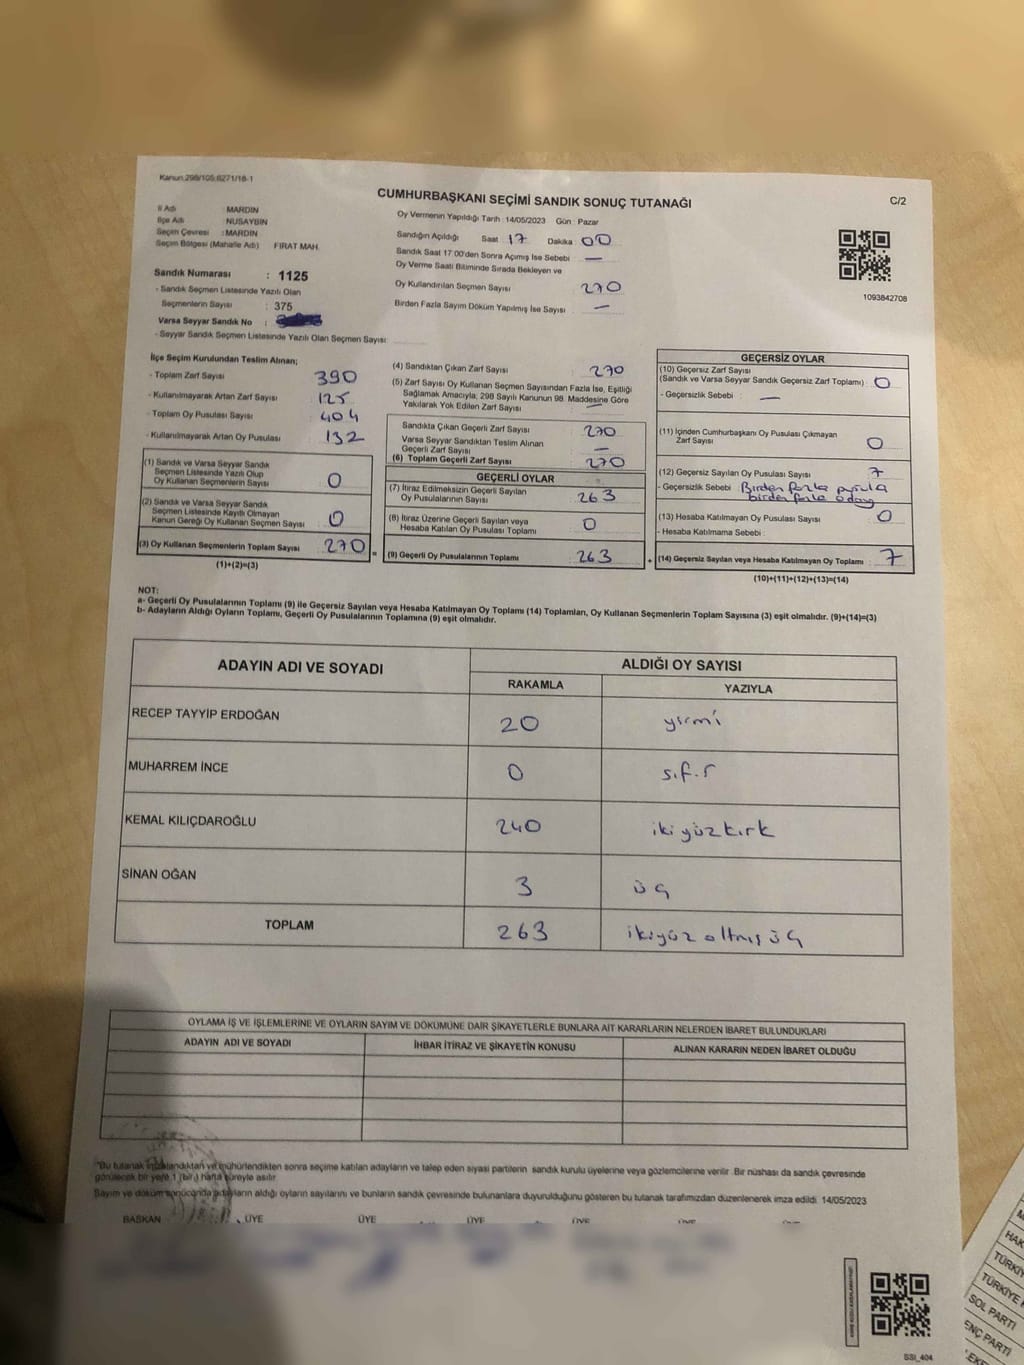 Kanun:298/105;6271/18-1
CUMHURBAŞKANI SEÇİMİ SANDIK SONUÇ TUTANAĞI
C/2
İl Adı : MARDİN
İlçe Adı : NUSAYBİN
Seçim Çevresi : MARDİN
Seçim Bölgesi (Mahalle Adı) FIRAT MAH.
Sandık Numarası : 1125
- Sandık Seçmen Listesinde Yazılı Olan
Seçmenlerin Sayısı : 375
Varsa Seyyar Sandık No :
- Seyyar Sandık Seçmen Listesinde Yazılı Olan Seçmen Sayısı:
Oy Vermenin Yapıldığı Tarih : 14/05/2023 Gün : Pazar
Sandığın Açıldığı Saat 17 Dakika : 00
Sandık Saat 17:00'den Sonra Açımış İse Sebebi : —
Oy Verme Saati Bitiminde Sırada Bekleyen ve
Oy Kullandırılan Seçmen Sayısı : 270
Birden Fazla Sayım Döküm Yapılmış İse Sayısı : —
1093842708
İlçe Seçim Kurulundan Teslim Alınan;
- Toplam Zarf Sayısı : 390
- Kullanılmayarak Artan Zarf Sayısı : 125
- Toplam Oy Pusulası Sayısı : 404
- Kullanılmayarak Artan Oy Pusulası : 132
(1) Sandık ve Varsa Seyyar Sandık
Seçmen Listesinde Yazılı Olup
Oy Kullanan Seçmenlerin Sayısı : 0
(2) Sandık ve Varsa Seyyar Sandık
Seçmen Listesinde Kayıtlı Olmayan
Kanun Gereği Oy Kullanan Seçmen Sayısı : 0
(3) Oy Kullanan Seçmenlerin Toplam Sayısı : 270
(1)+(2)=(3)
=
(4) Sandıktan Çıkan Zarf Sayısı : 270
(5) Zarf Sayısı Oy Kullanan Seçmen Sayısından Fazla İse, Eşitliği
Sağlamak Amacıyla; 298 Sayılı Kanunun 98. Maddesine Göre
Yakılarak Yok Edilen Zarf Sayısı : —
Sandıkta Çıkan Geçerli Zarf Sayısı : 270
Varsa Seyyar Sandıktan Teslim Alınan
Geçerli Zarf Sayısı : —
(6) Toplam Geçerli Zarf Sayısı : 270
GEÇERLİ OYLAR
(7) İtiraz Edilmeksizin Geçerli Sayılan
Oy Pusulalarının Sayısı : 263
(8) İtiraz Üzerine Geçerli Sayılan veya
Hesaba Katılan Oy Pusulası Toplamı : 0
(9) Geçerli Oy Pusulalarının Toplamı : 263
+
GEÇERSİZ OYLAR
(10) Geçersiz Zarf Sayısı
(Sandık ve Varsa Seyyar Sandık Geçersiz Zarf Toplamı) : 0
- Geçersizlik Sebebi : —
(11) İçinden Cumhurbaşkanı Oy Pusulası Çıkmayan
Zarf Sayısı : 0
(12) Geçersiz Sayılan Oy Pusulası Sayısı : 7
- Geçersizlik Sebebi : Birden fazla pusula
birden fazla aday
(13) Hesaba Katılmayan Oy Pusulası Sayısı : 0
- Hesaba Katılmama Sebebi :
(14) Geçersiz Sayılan veya Hesaba Katılmayan Oy Toplamı : 7
(10)+(11)+(12)+(13)=(14)
NOT:
a- Geçerli Oy Pusulalarının Toplamı (9) ile Geçersiz Sayılan veya Hesaba Katılmayan Oy Toplamı (14) Toplamları, Oy Kullanan Seçmenlerin Toplam Sayısına (3) eşit olmalıdır. (9)+(14)=(3)
b- Adayların Aldığı Oyların Toplamı, Geçerli Oy Pusulalarının Toplamına (9) eşit olmalıdır.
ADAYIN ADI VE SOYADI
ALDIĞI OY SAYISI
RAKAMLA YAZIYLA
RECEP TAYYİP ERDOĞAN 20 yirmi
MUHARREM İNCE 0 sıfır
KEMAL KILIÇDAROĞLU 240 ikiyüzkırk
SİNAN OĞAN 3 üç
TOPLAM 263 ikiyüz altmış üç
OYLAMA İŞ VE İŞLEMLERİNE VE OYLARIN SAYIM VE DÖKÜMÜNE DAİR ŞİKAYETLERLE BUNLARA AİT KARARLARIN NELERDEN İBARET BULUNDUKLARI
ADAYIN ADI VE SOYADI İHBAR İTİRAZ VE ŞİKAYETİN KONUSU ALINAN KARARIN NEDEN İBARET OLDUĞU
"Bu tutanak imzalandıktan ve mühürlendikten sonra seçime katılan adayların ve talep eden siyasi partilerin sandık kurulu üyelerine veya gözlemcilerine verilir. Bir nüshası da sandık çevresinde
görülecek bir yere 1 (bir) hafta süreyle asılır.
Sayım ve döküm sonucunda adayların aldığı oyların sayılarını ve bunların sandık çevresinde bulunanlara duyurulduğunu gösteren bu tutanak tarafımızdan düzenlenerek imza edildi. 14/05/2023
BAŞKAN ÜYE ÜYE ÜYE ÜYE ÜYE
SSI_404
HAK
TÜRKİY
TÜRKİYE
SOL PARTİ
ENÇ PARTİ